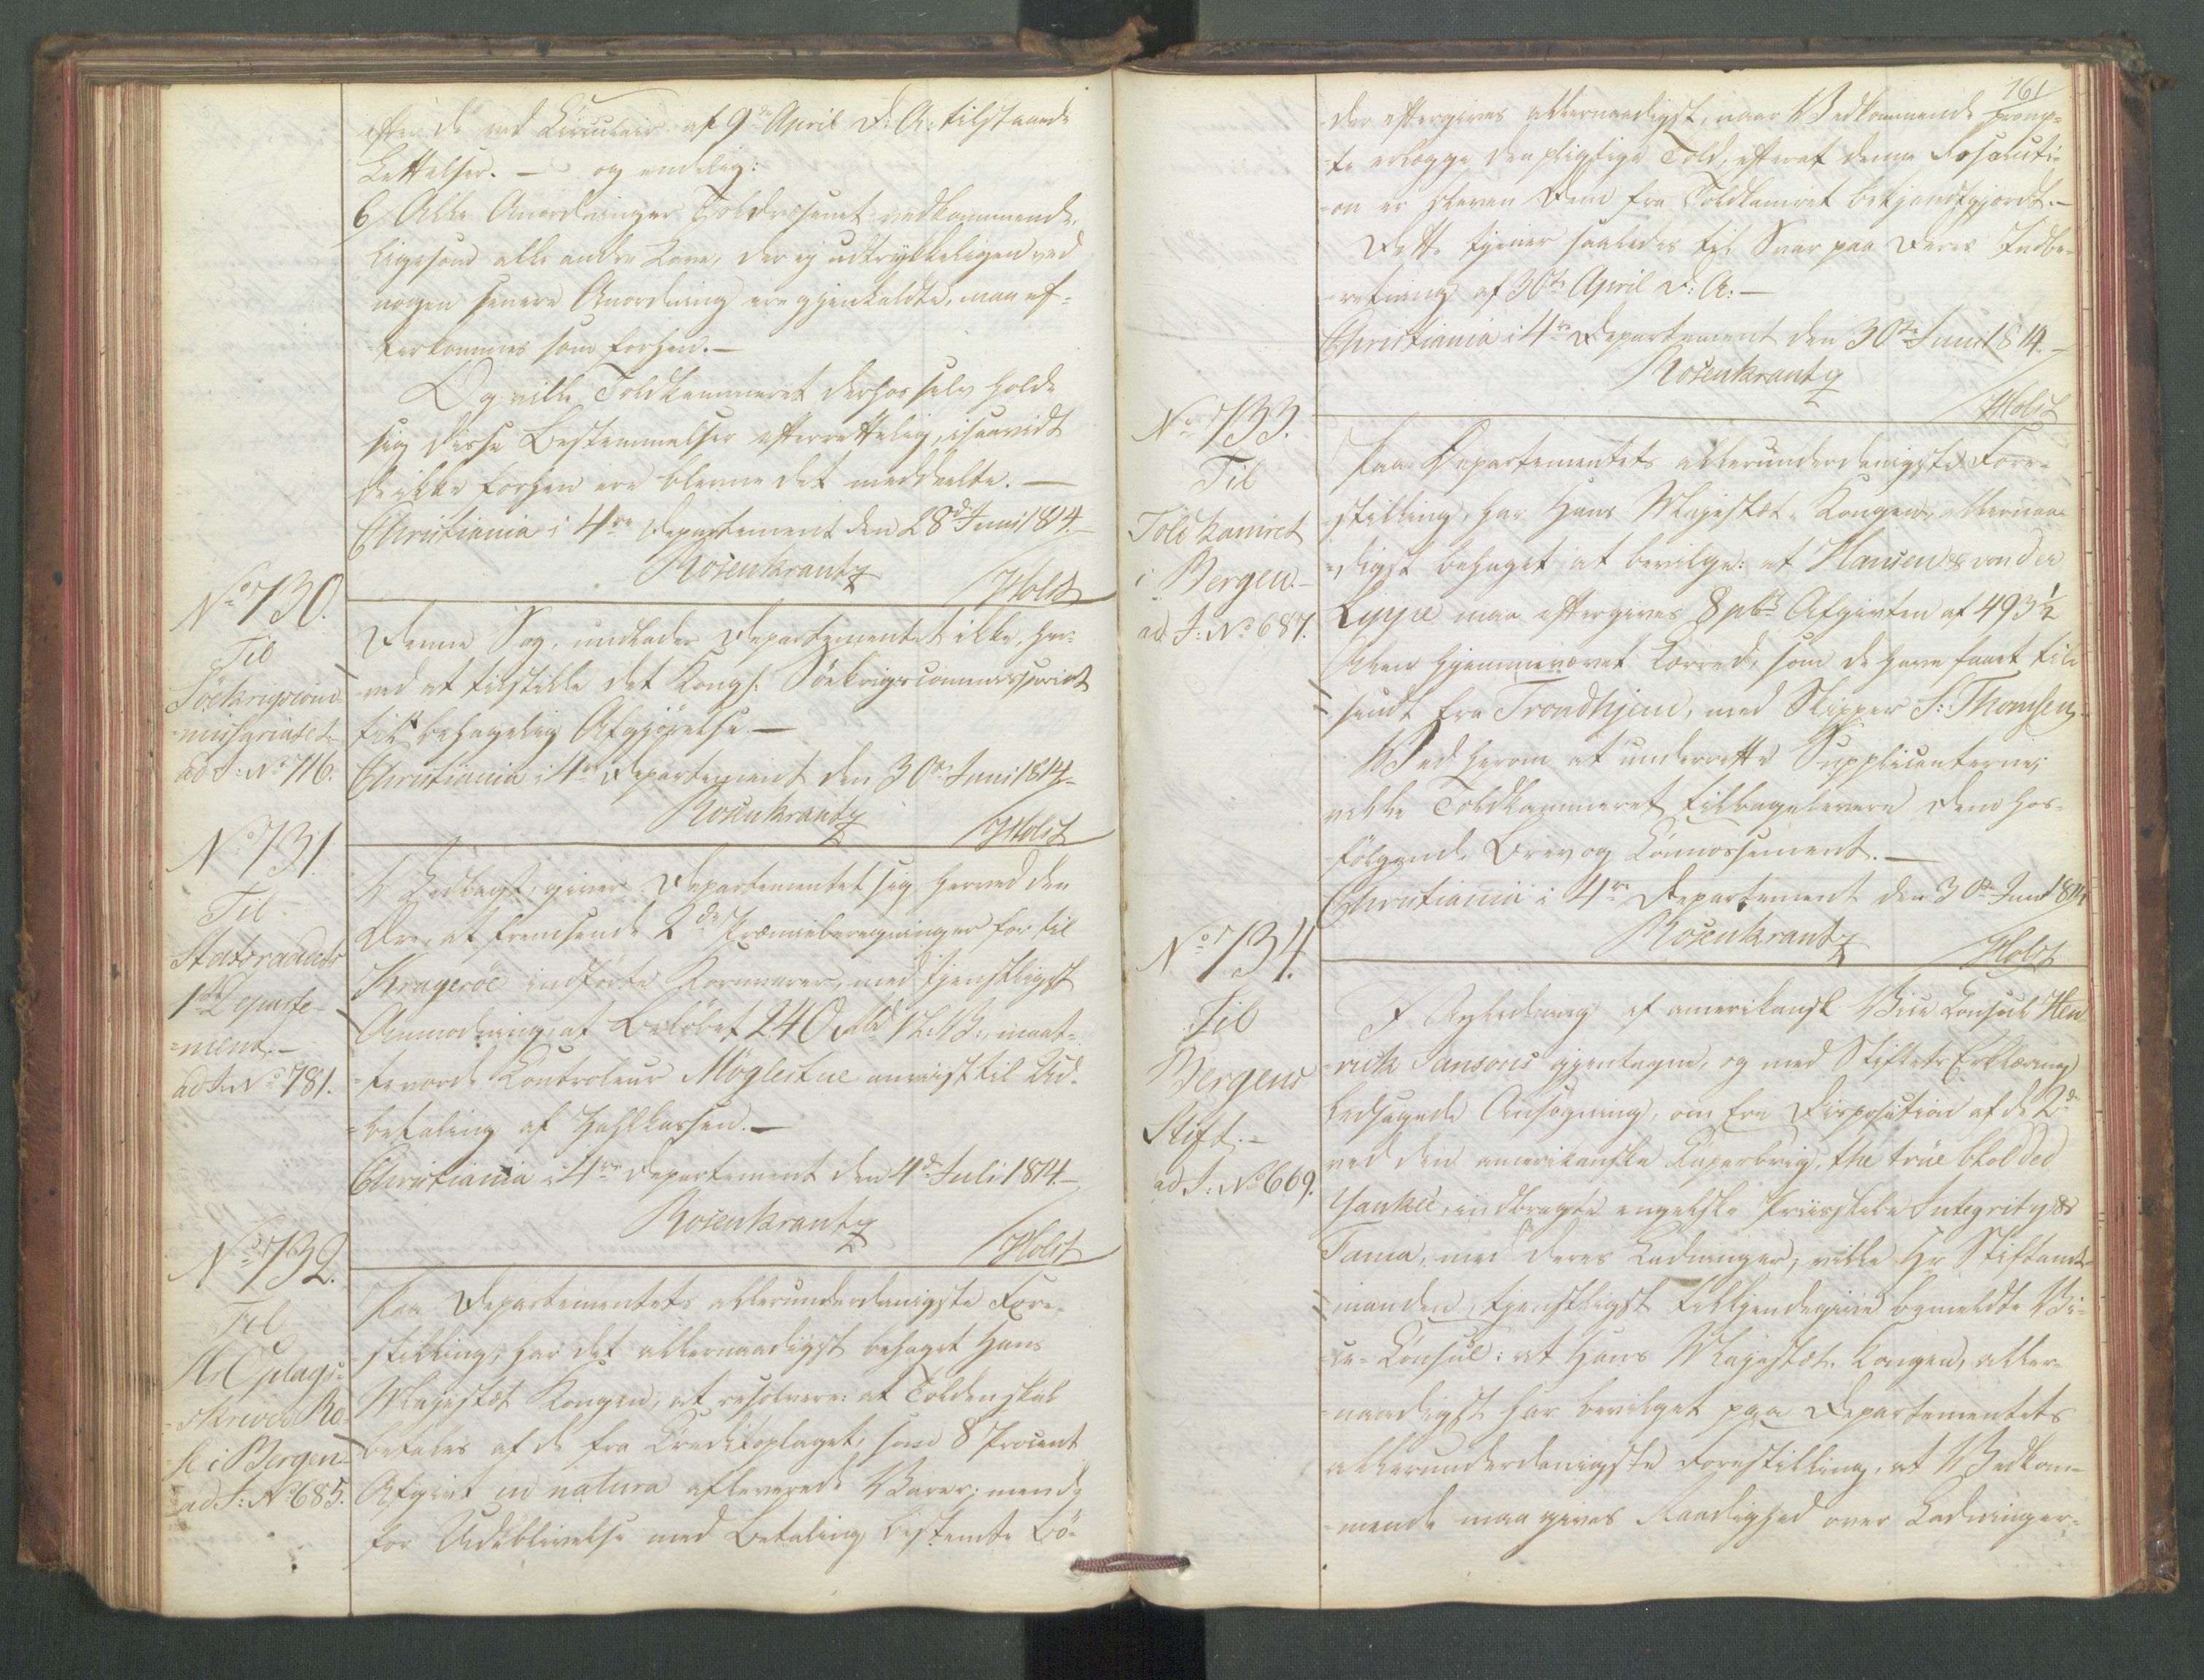 efter de ved Circulair af 9de April d: A: tilstaaede
Lettelser. — og endelig:
6/ Alle Anordninger Toldvæsenet vedkommende,
ligesom alle andre Love, der ej udtrykkeligen ved
nogen senere Anordning ere gjenkaldte, maa ef-
terkommes som forhen. —
Og ville Toldkammeret derhos selv holde
sig disse Bestemmelser efterrettelig, isaavidt
de ikke forhen ere blevne det meddeelte. —
Christiania i 4re Departement den 28de Juni 1814. —
Rosenkrantz
/Holst
No 730.
Til
Söekrigscom-
missariatet
ad J: No 716.
Denne Sag, undlader Departementet ikke, her-
ved at tilstille det Kongl: Söekrigscommissariat
til behagelig Afgjörelse. —
Christiania i 4re Departement den 30te Juni 1814. —
Rosenkrantz
/Holst
No 731.
Til
Statsraadets
1ste Departe-
ment. —
ad J: No 781.
Vedlagt, giver Departementet sig herved den
Ære, at fremsende 2de Præmieberegninger for til
Krageröe indförte Kornvarer, med tjenstligst
Anmodning, at Belöbet 240 Rbd N: V:, maat-
te vorde Controleur Möglestue anviist til Ud-
betaling af Zahlkassen. —
Christiania i 4re Departement den 4de Juli 1814. —
Rosenkrantz
/Holst
No 732.
Til
Hr Oplags-
skriver Ro-
i Bergen
ad J: No 685.
Paa Departementets allerunderdanigste Fore-
stilling, har det allernaadigst behaget Hans
Majestæt Kongen, at resolvere: at Tolden skal
betales af de fra Creditoplaget, som 8 Procent
Afgivt in natura afleverede Varer; men de
for Udeblivelse med Betaling bestemte Bö-
161
der eftergives allernaadigst, naar Vedkommende promp-
te erlægge den pligtige Told, efterat denne Resoluti-
on er bleven dem fra Toldkamret bekjendtgjordt. —
Dette tjener saaledes til Svar paa Deres Indbe-
retning af 30te April d: A: —
Christiania i 4re Departement den 30te Juni 1814. —
Rosenkrantz
/Holst
No 733.
Til
Toldkamret
i Bergen. —
ad J: No 687.
Paa Departementets allerunderdanigste Fore-
stilling, har Hans Majestæt Kongen, allernaa-
digst behaget at bevilge: at Hansen & von der
Lippe maa eftergives 8 pCt Afgivten af 493½
Alen hjemmevævet Lærred, som de have faaet til-
sendt fra Trondhjem, med Skipper S: Thomsen.
Ved herom at underrette Supplicanterne,
ville Toldkammeret tilbagelevere dem hos-
fölgende Brev og Connossement. —
Christiania i 4re Departement den 30te Juni 1814
Rosenkrantz
/Holst
No 734.
Til
Bergens
Stift. —
ad J: No 669.
I Anledning af amerikansk Vice Consul Hen-
rich Jansons gjentagne, og med Stiftets Erklæring
ledsagede Ansögning, om fri Disposition af de 2de
ved den amerikanske Kaperbrig, the true blooded
Yankee, indbragte engelske Priisskibe Integrity &
Tama, med deres Ladninger; ville Hr Stiftamt-
manden, tjenstligst tilkjendegive bemeldte Vi-
ce-Consul: at Hans Majestæt Kongen, aller-
naadigst har bevilget paa Departementets
allerunderdanigste Forestilling, at Vedkom-
mende maa gives Raadighed over Ladninger-